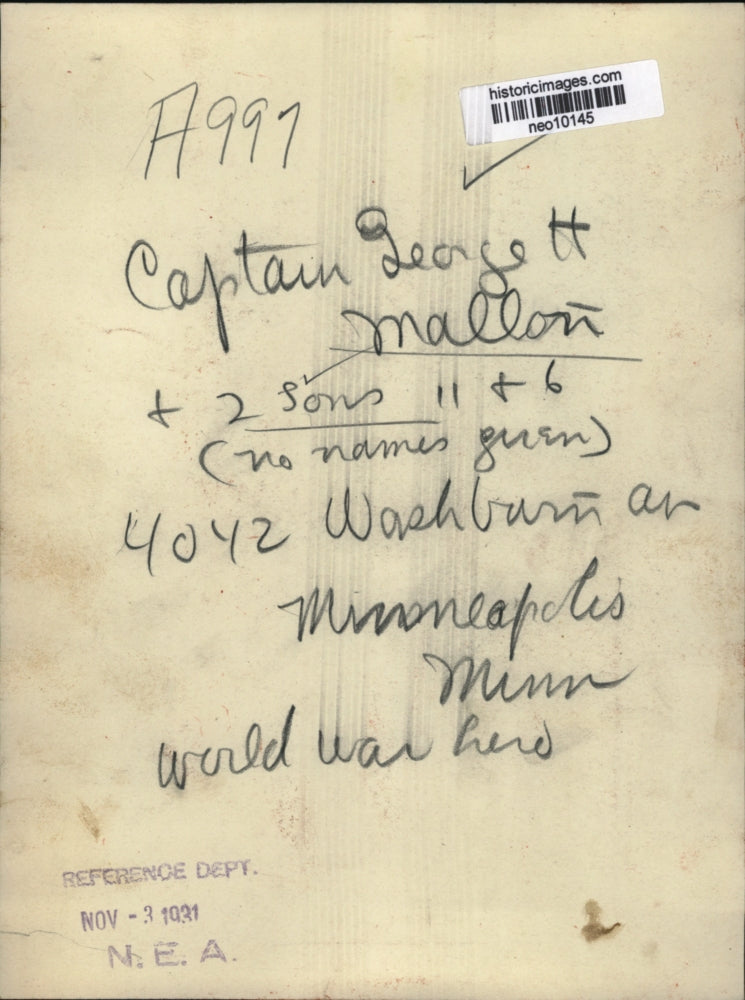 historicimages.com
neo10145
A997
Captain George H
Mallon
+ 2 Sons 11 + 6
(no names given)
4042 Washburn av
Minneapolis
Minn
world war hero
REFERENCE DEPT.
NOV - 3 1931
N. E. A.